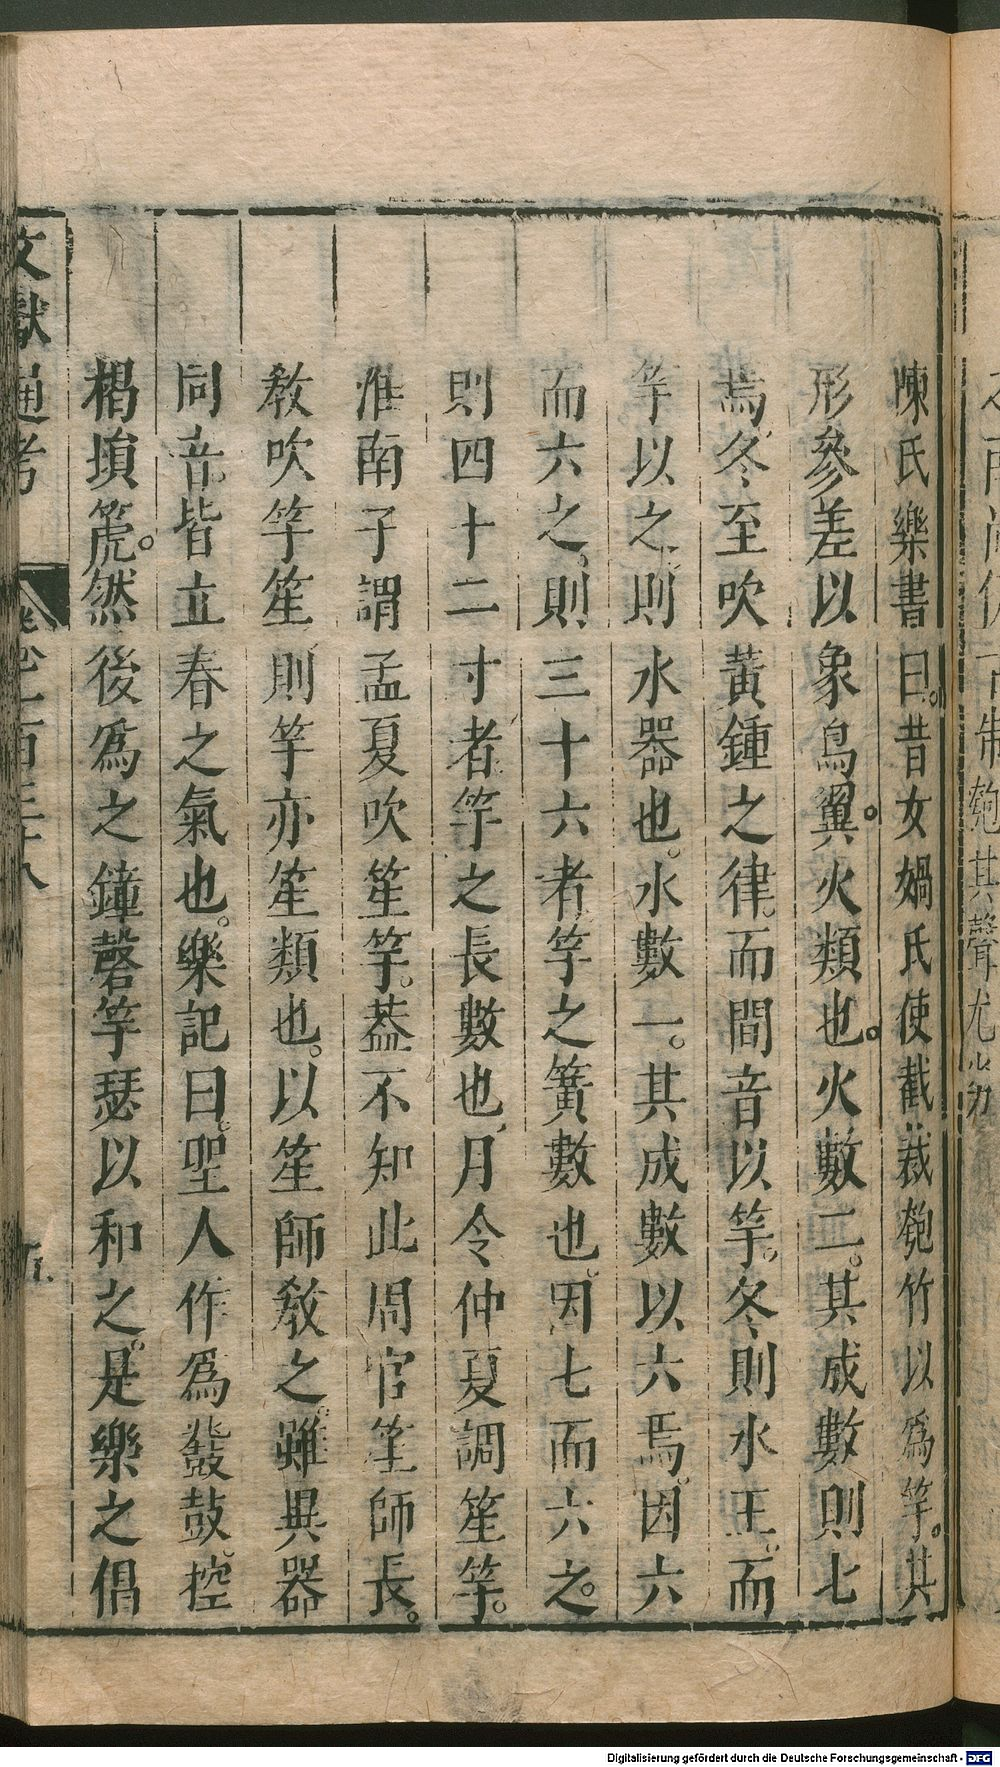 陳氏樂書曰。昔女媧氏使截裁匏竹以爲竽。其
形參差以象鳥翼。火類也。火數二。其成數則七
焉。冬至吹黃鍾之律。而間音以竽。冬則水王。而
竽以之。則水器也。水數一。其成數以六焉。因六
而六之。則三十六者竽之簧數也。因七而六之。
則四十二寸者竽之長數也。月令仲夏調笙竽。
淮南子謂孟夏吹笙竽。葢不知此周官笙師長。
教吹竽笙則竽亦笙類也。以笙師教之。雖異器
同音。皆立春之氣也。樂記曰。聖人作爲鼗鼓。椌
楬塤箎。然後爲之鐘磬竽瑟以和之。是樂之倡
文獻通考
卷之一百三十八
匏其聲尤
Digitalisierung gefördert durch die Deutsche Forschungsgemeinschaft - DFG